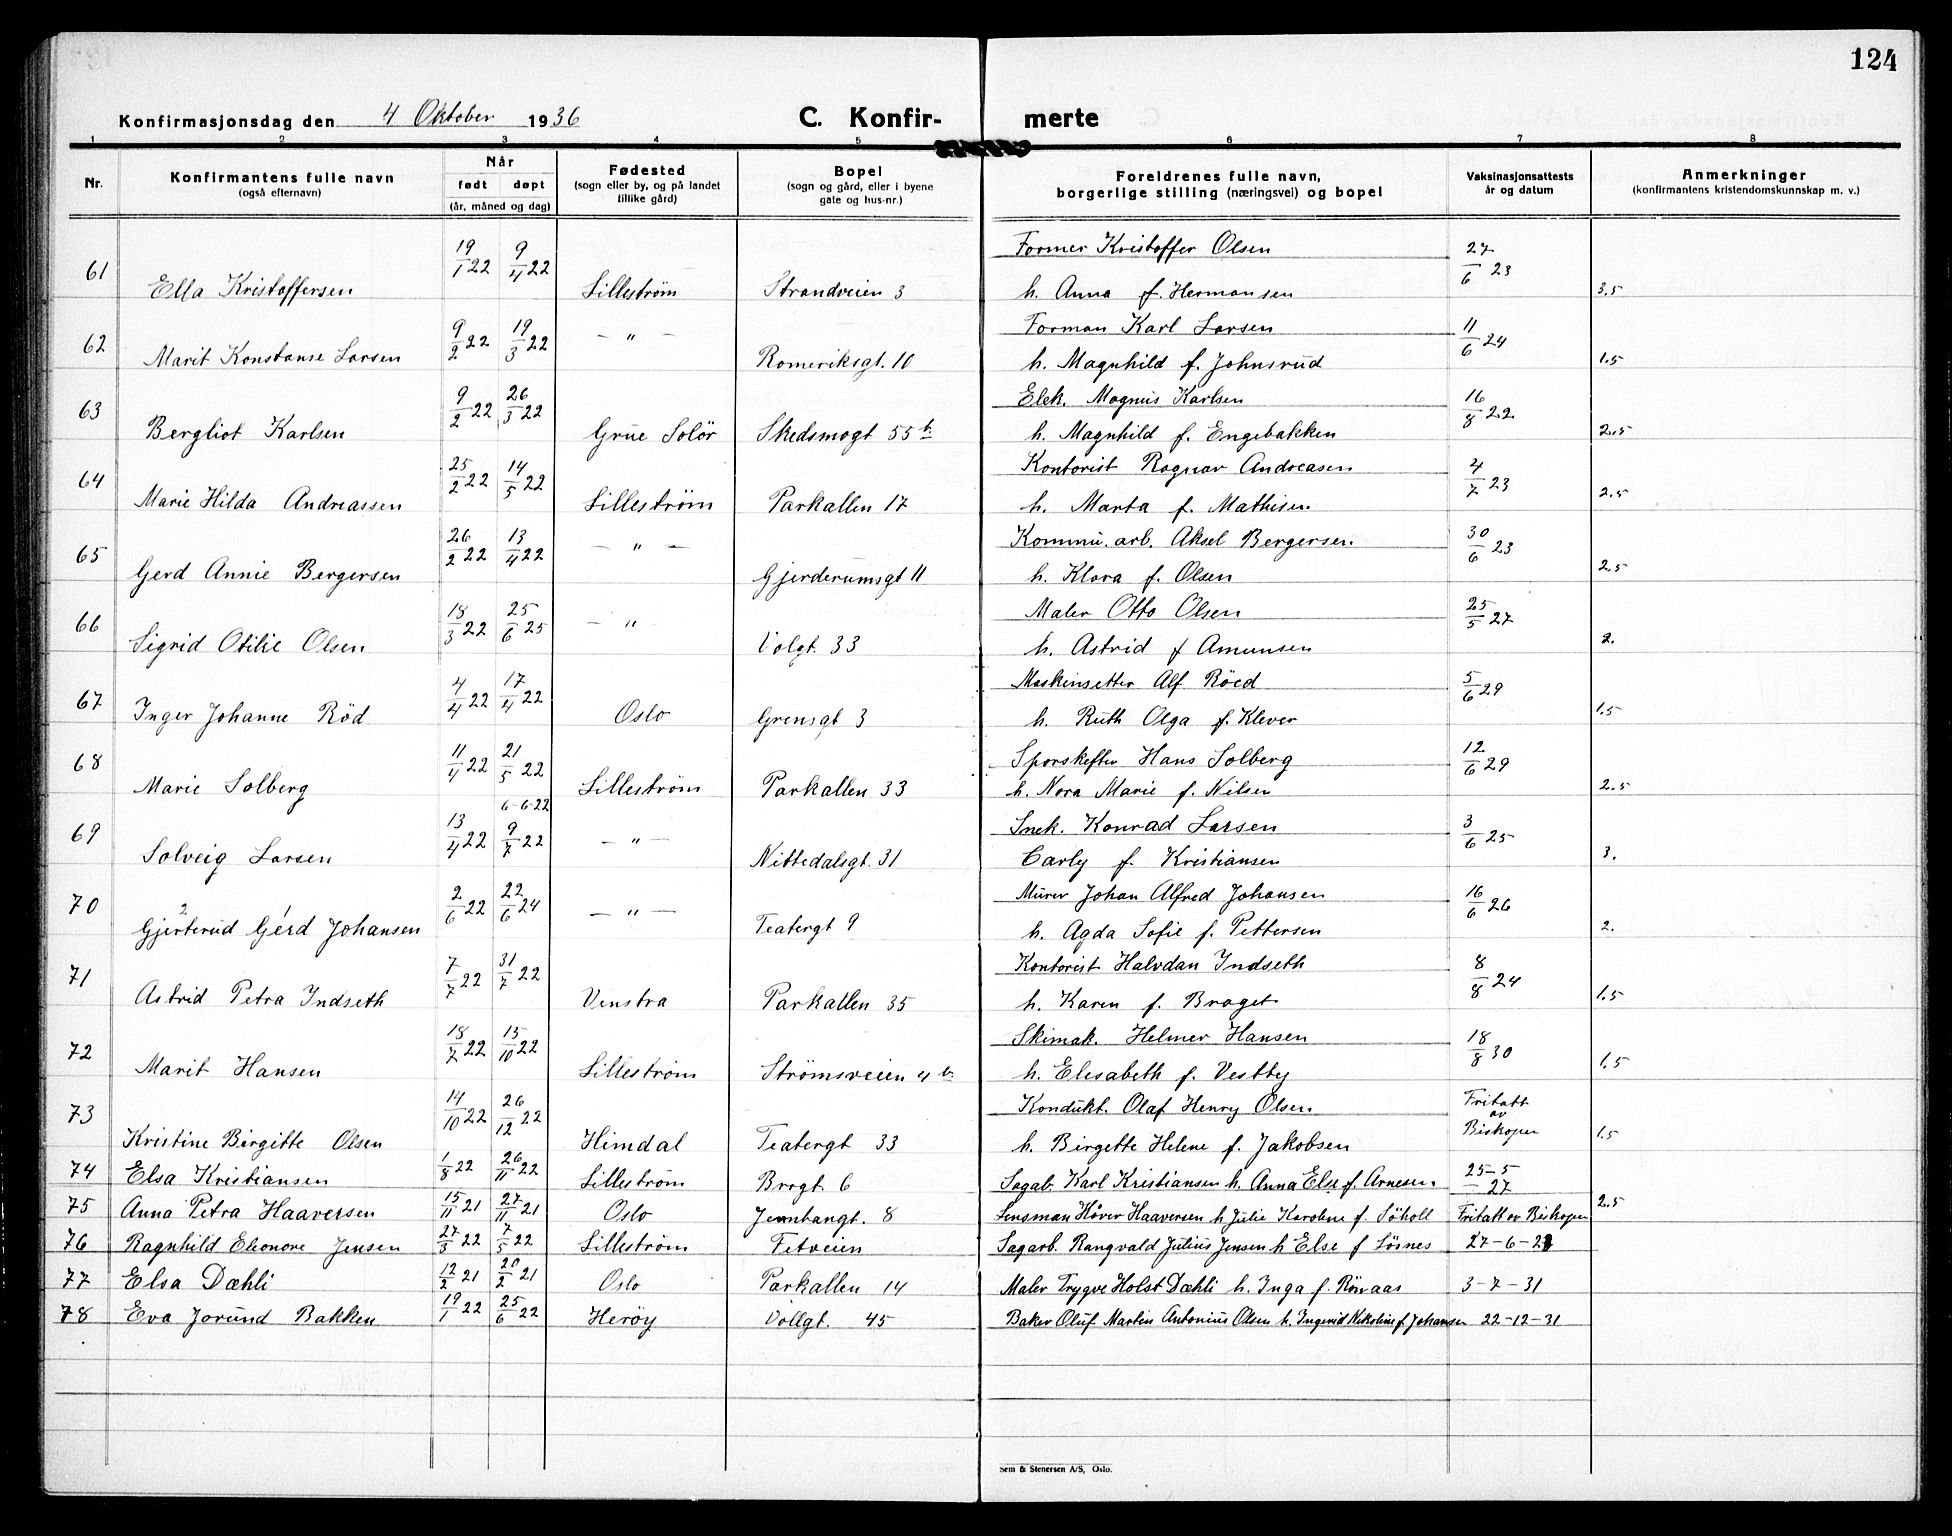 124
Konfirmasjonsdag den 4 Oktober 1936 C. Konfir- merte
1 2 3 4 5 6 7 8
Nr. Konfirmantens fulle navn (også efternavn) Når født døpt (år, måned og dag) Fødested (sogn eller by, og på landet tillike gård) Bopel (sogn og gård, eller i byene gate og hus-nr.) Foreldrenes fulle navn, borgerlige stilling (næringsvei) og bopel Vaksinasjonsattests år og datum Anmerkninger (konfirmantens kristendomskunnskap m. v.)
61 Ella Kristoffersen 19/1 22 9/4 22 Lillestrøm Strandveien 3 Former Kristoffer Olsen h. Anna f. Hermansen 27/6 23 3.5
62 Marit Konstanse Larsen 9/2 22 19/3 22 — " — Romeriksgt. 10 Forman Karl Larsen h. Magnhild f. Johnsrud 11/6 24 1.5
63 Bergliot Karlsen 9/2 22 26/3 22 Grue Solør Skedsmogt 55 b Elek. Magnus Karlsen h. Magnhild f. Engebakken 16/8 22. 2.5
64 Marie Hilda Andreassen 25/2 22 14/5 22 Lillestrøm Parkallen 17 Kontorist Ragnar Andreasen h. Marta f. Mathisen 4/7 23 2.5
65 Gerd Annie Bergersen 26/2 22 13/4 22 — " — Gjerderumsgt 11 Kommu. arb. Aksel Bergersen. h. Klara f. Olsen 30/6 23 2.5
66 Sigrid Otilie Olsen 18/3 22 25/6 25 — " Volgt. 33 Maler Otto Olsen h. Astrid f Amunsen 25/5 27 2.
67 Inger Johanne Röd 4/4 22 17/4 22 Oslo Grensgt 3 Maskinsetter Alf Röed h. Ruth Olga f. Klever 5/6 29 1.5
68 Marie Solberg 11/4 22 21/5 22 Lillestrøm Parkallen 33 Sporskefter Hans Solberg h. Nora Marie f. Nilsen 12/6 29 2.5
6-6-22
69 Solveig Larsen 13/4 22 9/7 22 — " — Nittedalsgt. 31 Snek. Konrad Larsen Carly f. Kristiansen 3/6 25 3.
70 Gjerterud 2 Gerd 1 Johansen 2/6 22 22/6 24 — " — Teatergt 9 Murer Johan Alfred Johansen h. Agda Sofie f. Pettersen 16/6 26 2.
71 Astrid Petra Indseth 7/7 22 31/7 22 Vinstra Parkallen 35 Kontorist Halvdan Indseth h. Karen f. Braget 8/8 24 1.5
72 Marit Hansen 18/7 22 15/10 22 Lillestrøm Strømsveien 4 b. Skimak. Helmer Hansen h. Elisabeth f. Vestby 18/8 30 1.5
73 Kristine Birgitte Olsen 14/10 22 26/12 22 Himdal Teatergt 33 Kondukt. Olaf Henry Olsen h. Birgette Helene f. Jakobsen Fritatt av Biskopen 1.5
74 Elsa Kristiansen 1/8 22 26/11 22 Lillestrøm Brogt. 6 Sagab. Karl Kristiansen h. Anna Else f. Arnesen. 25-5-27
75 Anna Petra Haaversen 15/11 21 27/11 21 Oslo Jernbangt. 8 Lensman Håver Haaversen h Julie Karoline f. Söholl Fritatt av Biskopen 2.5
76 Ragnhild Eleonore Jensen 27/3 22 7/5 22 Lillestrøm Fetveien Sagarb. Rangvald Julius Jensen h Else f Lösnes 27-6-
77 Elsa Dæhli 12/2 21 20/2 21 Oslo Parkallen 14 Maler Trygve Holst Dæhli h. Inga f. Rönaas 3-7-31
78 Eva Jorund Bakken 19/1 22 25/6 22 Herøy Vollgt. 45 Baker Oluf Martin Antonius Olsen h. Ingerid f. Johansen 22-12-31
Sem & Stenersen A/S, Oslo.